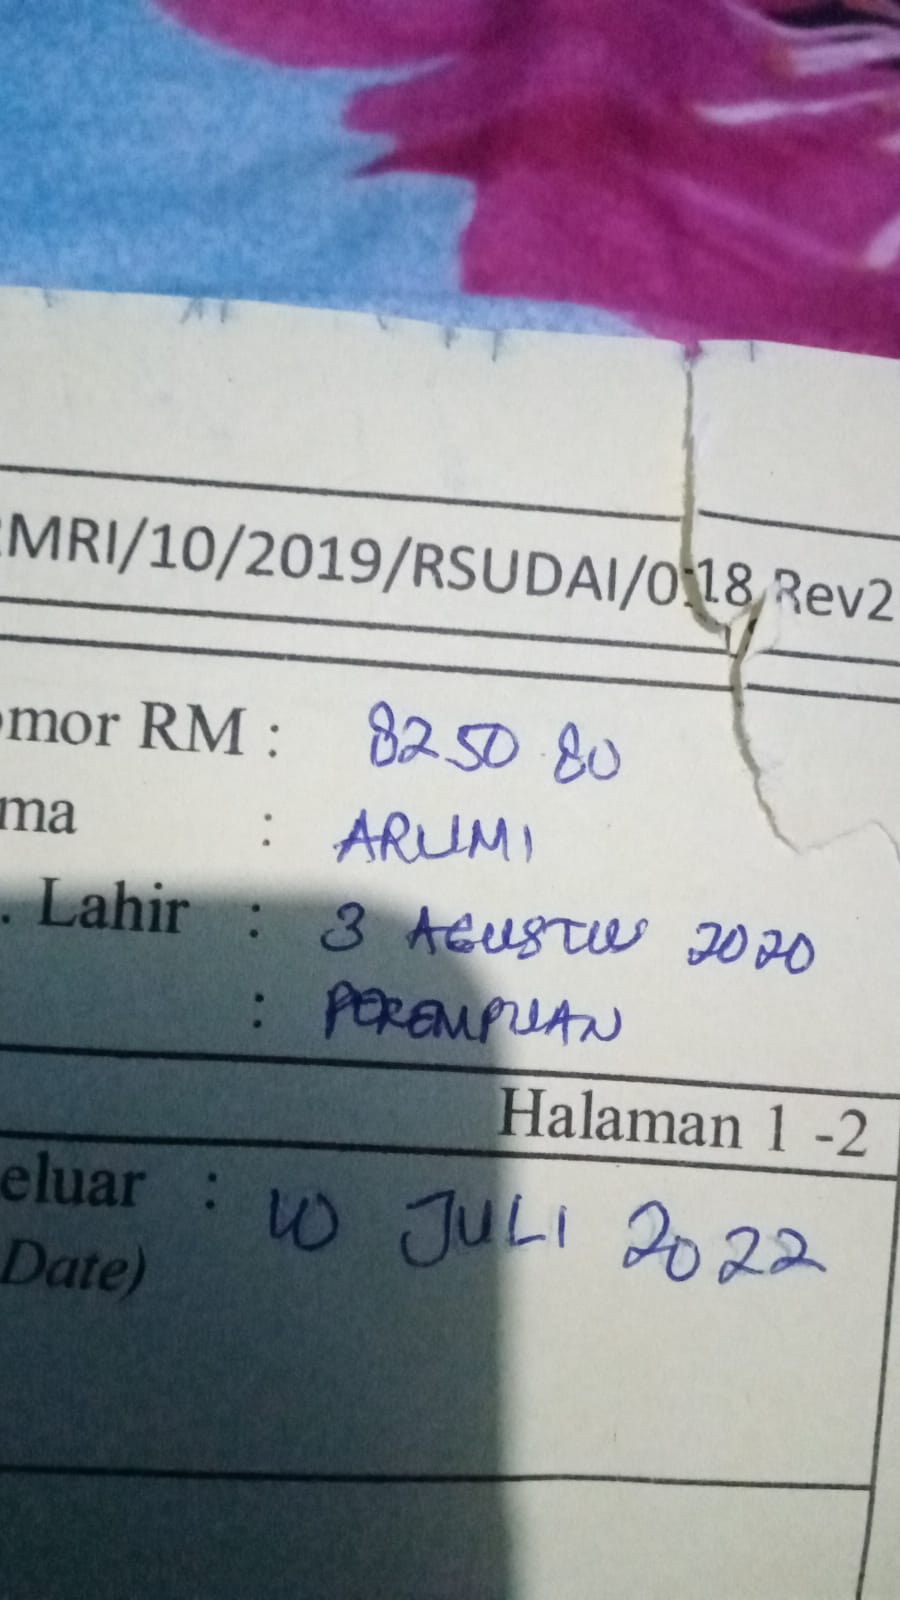 MRI/10/2019/RSUDAI/018 Rev2
omor RM : 82 50 80
ma : ARUMI
. Lahir : 3 AGUSTUS 2020
: PEREMPUAN
Halaman 1 -2
eluar : 10 JULI 2022
Date)